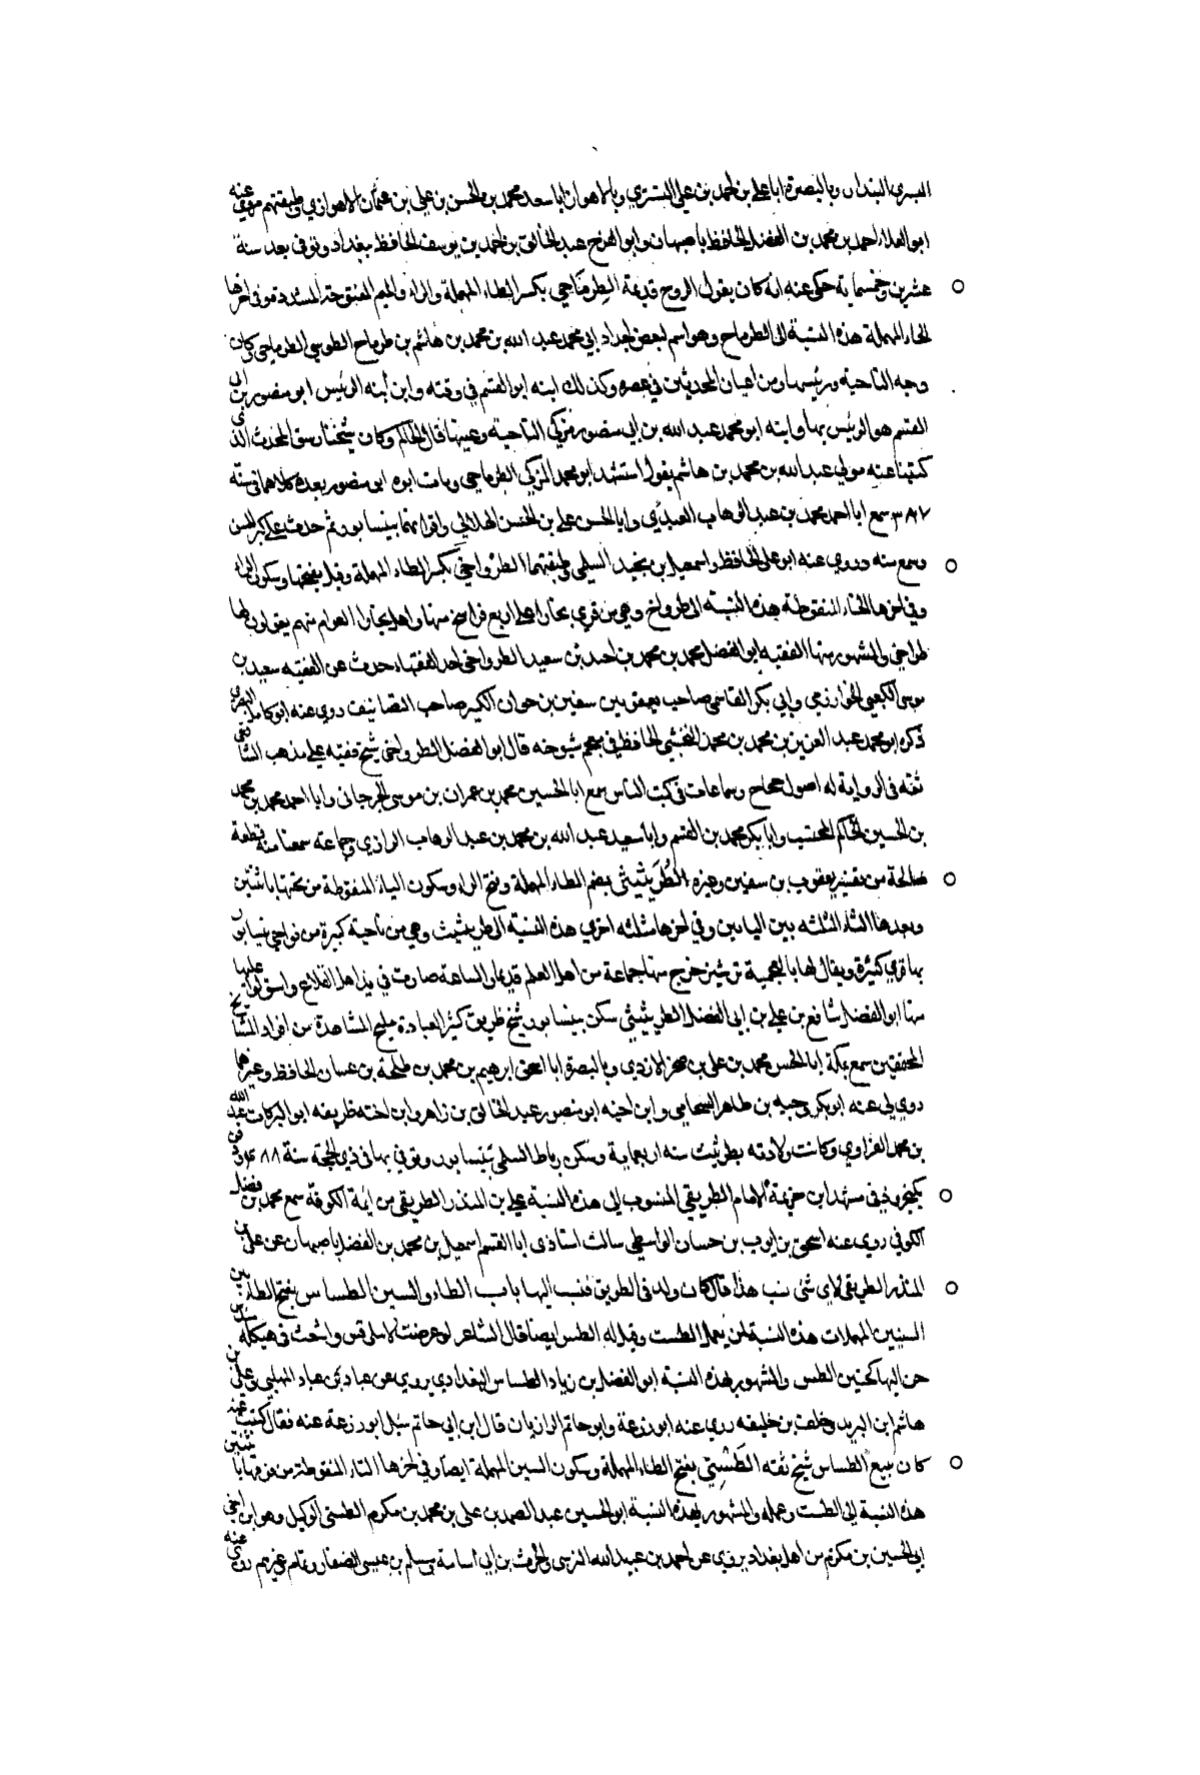 البسري البندار وبالبصرة ابا علي بن احمد بن علي التستري وبالاهواز ابا سعد محمد بن الحسن بن علي بن عثمان الاهوازي وطبقتهم روى عنه
ابو العلاء احمد بن محمد بن الفضل الحافظ باصبهان وابو الفرج عبد الخالق بن احمد بن يوسف الحافظ ببغداد وتوفى بعد سنة
عشرين وخمسماية حكى عنه انه كان يقول الروح قديمة الطِرمَّاحي بكسر الطاء المهملة والراء والميم المفتوحة المشددة وفى اخرها
الحاء المهملة هذه النسبة الى الطرماح وهو اسم لبعض اجداد ابي محمد عبد الله بن محمد بن هاشم بن طرماح الطوسي الطرماحى كان
وجه الناحية ورئيسها ومن اعيان المحدثين في عصره وكذلك ابنه ابو القسم في وقته وابن ابنه الرئيس ابو منصور بن ابى
القسم هو الرئيس بها وابنه ابو محمد عبد الله بن ابى منصور مزكي الناحية وعينها قال الحاكم وكان شيخنا المحدث الذى
كتبنا عنه مولي عبد الله بن محمد بن هاشم يقول استشهد ابو محمد المزكي الطرماحي ومات ابوه ابو منصور بعده كلاهما فى سنة
٣٨٧ سمع ابا احمد محمد بن عبد الوهاب العبدي وابا الحسن علي بن الحسن الهلالي واقرانهما بنيسابور ثم حدث على كبر السن
وسمع منه وروى عنه ابو على الحافظ واسمعيل بن نجيد السلمى وطبقتهما الطِرْواخىّ بكسر الطاء المهملة وقيل بفتحها وسكون الراء
وفى اخرها الخاء المنقوطة هذه النسبة الى طرواخ وهى من قرى بخارا على اربع فراسخ منها واهل بخارا العوام منهم يقولون لها
طراخى والمشهور منها الفقيه ابو الفضل محمد بن محمد بن احمد بن سعيد الطرواخى احد الفقهاء حدث عن الفقيه سعيد بن
موسى الكعبى الخوارزمى وابي بكر القاسمى صاحب يعقوب بن سفين بن جوان الكبير صاحب التصانيف روى عنه ابو كامل البصرى
ذكره ابو محمد عبد العزيز بن محمد بن محمد النخشبي الحافظ في معجم شيوخه قال ابو الفضل الطرواخى شيخ فقيه على مذهب الشافعى
ثقه فى الرواية له اصول صحاح وسماعات في كتب الناس سمع ابا الحسين محمد بن عمران بن موسى الجرجانى وابا احمد محمد بن محمد
بن الحسين الحاكم المحتسب وابا بكر محمد بن القسم وابا سعيد عبد الله بن محمد بن عبد الوهاب الرازي وجماعة سمعنا منه قطعة
صالحة من تفسير يعقوب بن سفين وغيره الطُرَيثيثى بضم الطاء المهملة وفتح الراء وسكون الياء المنقوطة من تحتها باثنتين
وبعدها الثاء المثلثه بين اليائين وفى اخرها مثلثه اخرى هذه النسبة الى طريثيث وهى من ناحية كبيرة من نواحى نيسابور
بها قرى كثيرة ويقال لها بالعجمية ترشيز خرج منها جماعة من اهل العلم قديما والساعة صارت في يد اهل القلاع واستولوا عليها
منها ابو الفضل شافع بن على بن ابى الفضل الطريثيثي سكن بنيسابور شيخ ظريف كثير العبادة مليح المشاهدة من افراد المشايخ
المحققين سمع بمكة ابا الحسن محمد بن على بن صخر الازدي وبالبصرة ابا اسحق ابرهيم بن محمد بن طلحة بن غسان الحافظ وغيرهما
روى لى عنه ابو بكر وجيه بن طاهر الشحامى وابن اخيه ابو منصور عبد الخالق بن زاهر وابن اخته ظريفه ابو البركات عبد الله
بن محمد الفراوي وكانت ولادته بطريثيث سنه اربعماية وسكن رباط السلمى بنيسابور وتوفى بها فى ذى الحجة سنة ٤٨٨ ودفن
بكنجروذ فى مشهد ابن خزيمة الامام الطريقي المنسوب الى هذه النسبة على بن المنذر الطريقى من ائمة الكوفة سمع محمد بن فضيل
الكوفى روى عنه اسحق بن ايوب بن حسان الواسطى سالت استاذى ابا القسم اسمعيل بن محمد بن الفضل باصبهان عن على بن
المنذر الطريقى لاى شئ نسب هذا قال كان ولد فى الطريق فنسب اليها باب الطاء والسين الطساس بفتح الطاء بين
السينين المهملات هذه النسبة لمن يعمل الطست وقيل له الطس ايضا قال الشاعر لو عرضت لاسلى قس واشعث فى هيكله
حن اليها كحنين الطس والمشهور بهذه النسبة ابو الفضل بن زياد الطساس البغدادى يروى عن عباد بن عباد المهلبى وعلى بن
هاشم ابن البريد وخلف بن خليفه روى عنه ابو زرعة وابو حاتم الرازيان قال ابن ابى حاتم سئل ابو زرعة عنه فقال كتبت عنه
كان يبيع الطساس شيخ ثقه الطَسْتِي بفتح الطاء المهملة وسكون السين المهملة ايضا وفي اخرها التاء المنقوطة من فوقها باثنتين
هذه النسبة الى الطست وعمله والمشهور بهذه النسبة ابو الحسين عبد الصمد بن على بن محمد بن مكرم الطستى الوكيل وهو ابن اخى
ابى الحسين بن مكرم من اهل بغداد يروى عن احمد بن عبيد الله النرسى والحرث بن ابي اسامة وسلم بن عيسى الصفار وتمام وغيرهم روى عنه